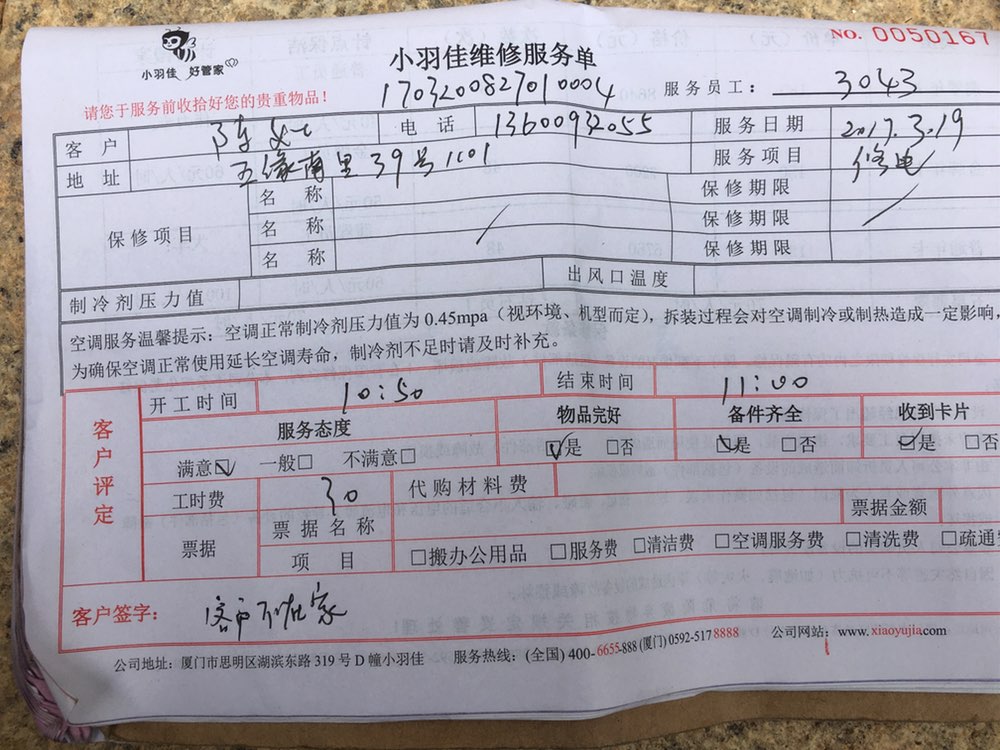 小羽佳 好管家
NO. 0050167
小羽佳维修服务单
请您于服务前收拾好您的贵重物品！
1703200827010004
服务员工： 3043
客户 陈女士 电话 服务日期 2017.3.19
地址 五缘南里39号1101 服务项目 修电
保修项目 名称 保修期限
名称 / 保修期限 /
名称 保修期限
制冷剂压力值 出风口温度
空调服务温馨提示：空调正常制冷剂压力值为 0.45mpa（视环境、机型而定），拆装过程会对空调制冷或制热造成一定影响，
为确保空调正常使用延长空调寿命，制冷剂不足时请及时补充。
客户评定
开工时间 10:50 结束时间 11:00
服务态度 物品完好 备件齐全 收到卡片
满意☑ 一般□ 不满意□ ☑是 □否 ☑是 □否 ☑是 □否
工时费 30 代购材料费
票据 票据名称 票据金额
项目 □搬办公用品 □服务费 □清洁费 □空调服务费 □清洗费 □疏通
客户签字： 客户不在家
公司地址：厦门市思明区湖滨东路 319 号 D 幢小羽佳 服务热线：(全国) 400-6655-888 (厦门) 0592-517 8888 公司网站：www.xiaoyujia.com